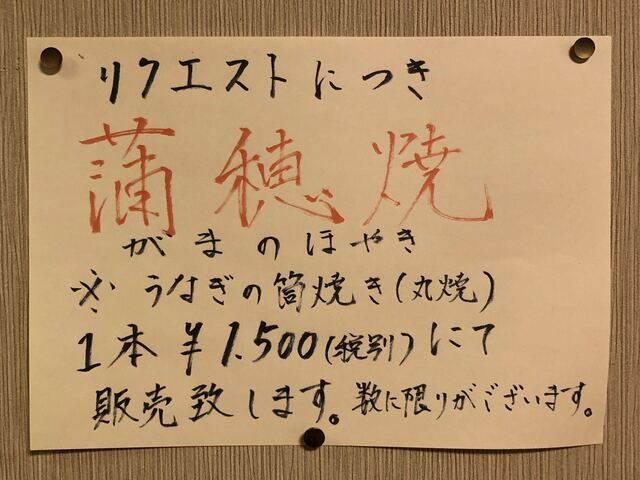 リクエストにつき
蒲穂焼
がまのほやき
※うなぎの筒焼き(丸焼)
1本¥1.500(税別)にて
販売致します。数に限りがございます。